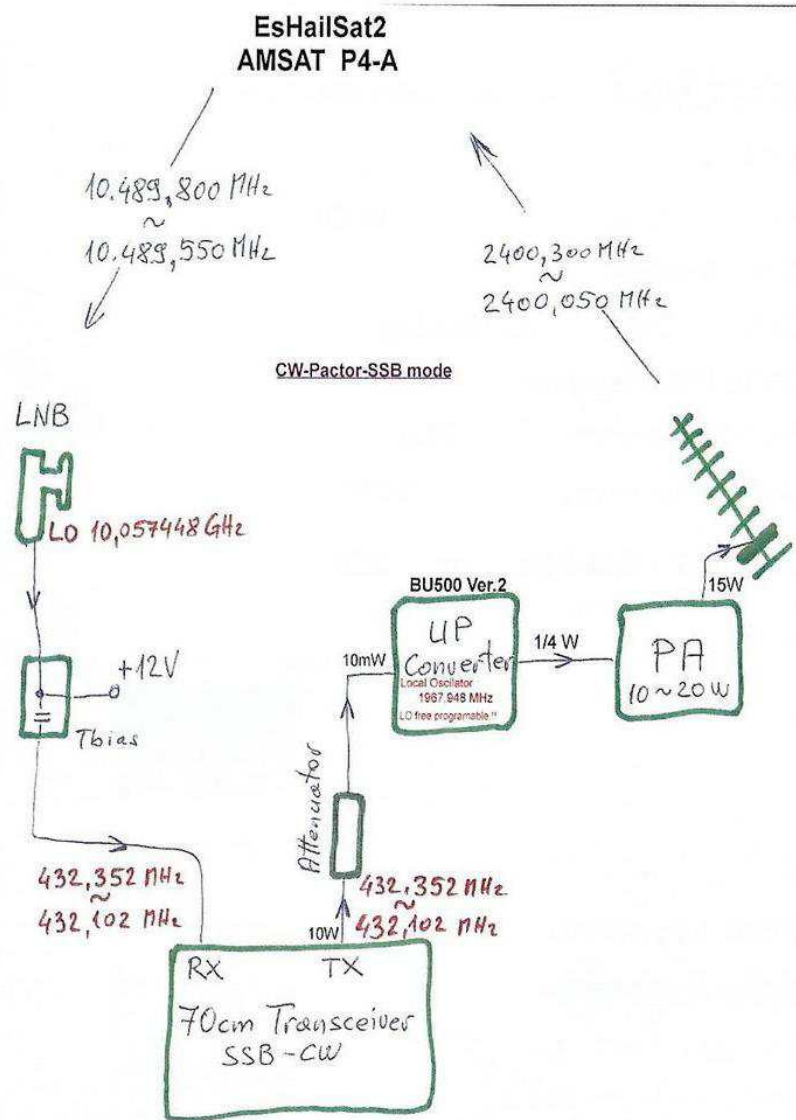 EsHailSat2
AMSAT P4-A
10.489,800 MHz
~
10.489,550 MHz
2400,300 MHz
~
2400,050 MHz
CW-Pactor-SSB mode
LNB
LO 10,057448 GHz
+12V
Tbias
BU500 Ver.2
UP
Converter
Local Oscilator
1967.948 MHz
LO free programable !!
10mW
1/4 W
PA
10~20W
15W
Attenuator
432,352 MHz
~
432,102 MHz
432,352 MHz
~
432,102 MHz
10W
RX TX
70cm Transceiver
SSB-CW